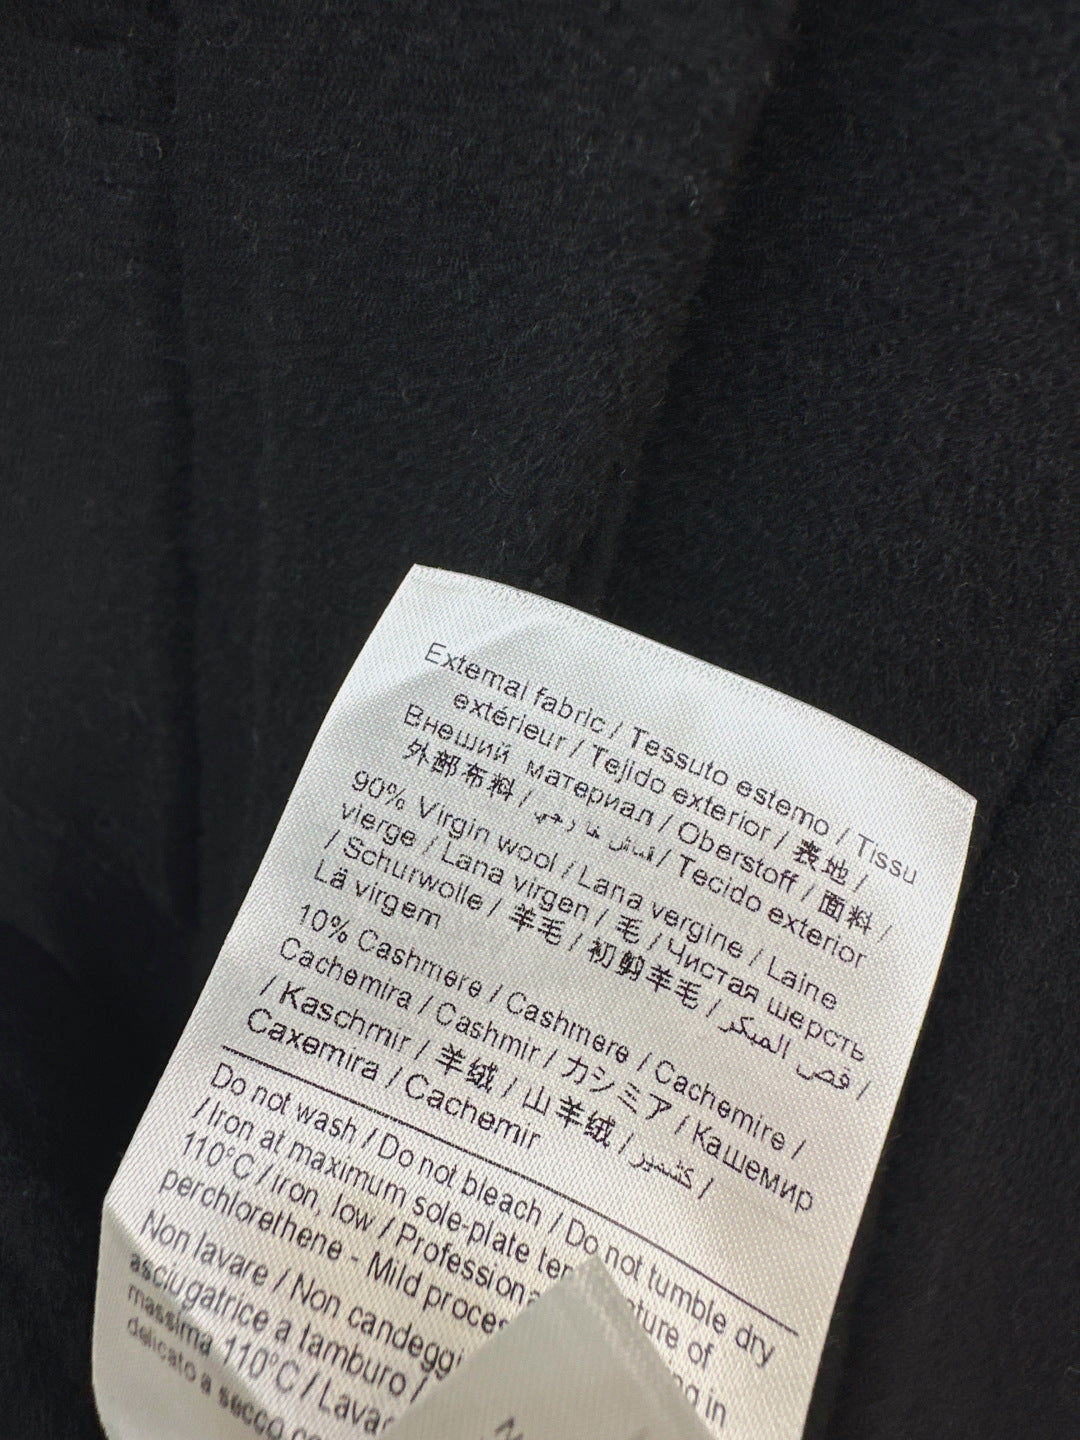 External fabric / Tessuto esterno / Tissu
extérieur / Tejido exterior / 表地 /
Внеший материал / Oberstoff / 面料 /
外部布料 / / Tecido exterior
90% Virgin wool / Lana vergine / Laine
vierge / Lana virgen / 毛 / Чистая шерсть
/ Schurwolle / 羊毛 / 初剪羊毛 / قص المبكر /
Lä virgem
10% Cashmere / Cashmere / Cachemire /
Cachemira / Cashmir / カシミア / Кашемир
/ Kaschmir / 羊绒 / 山羊绒 / كشمير /
Caxemira / Cachemir
Do not wash / Do not bleach / Do not tumble dry
/ Iron at maximum sole-plate ature of
110°C / iron, low / Profession ng in
perchlorethene - Mild proces
Non lavare / Non candeggi
asciugatrice a tamburo /
massima 110°C / Lavag
delicato a secco co